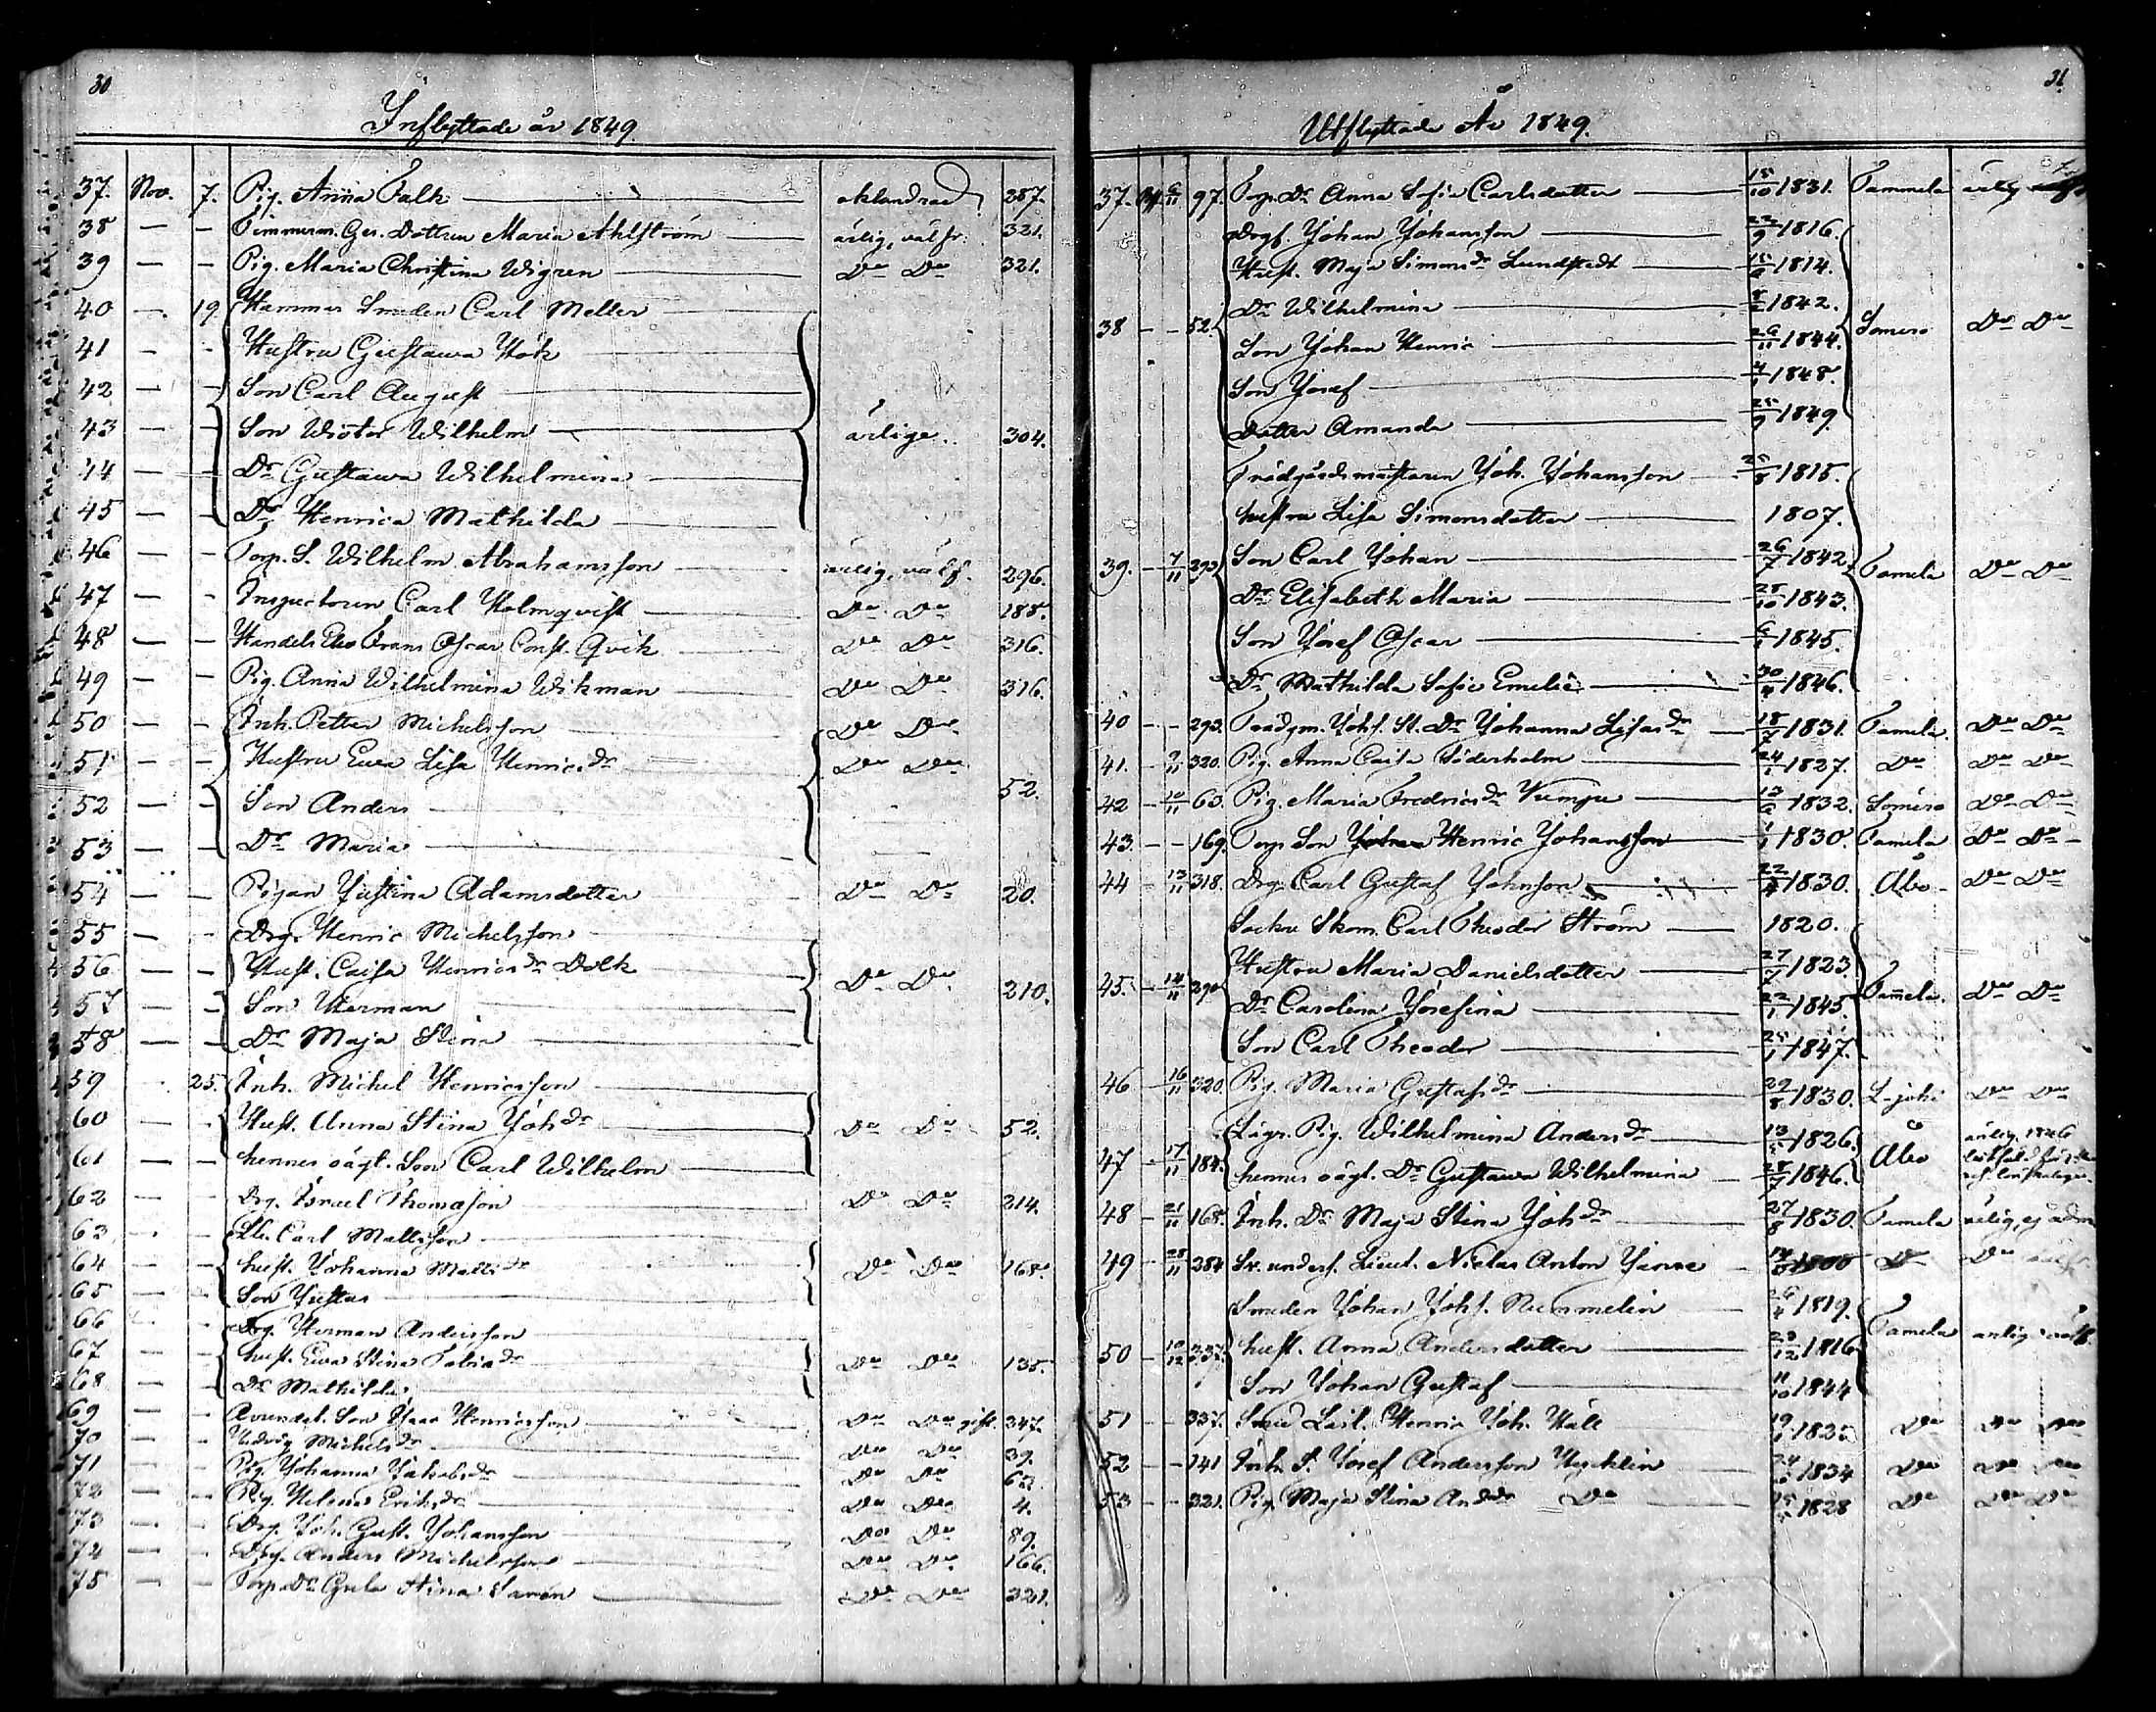 30
Inflyttade år 1849.
37. Nov. 7. Pig. Anna Falk oklandrad 287.
38 — — Timmerm. Ges. Dottren Maria Ahlström ärlig, väl fr. 321.
39 — — Pig. Maria Christina Wigren Do Do 321.
40 — 19 Hammar Smeden Carl Meller
41 — — Hustru Gustawa Hök
42 — — Son Carl August
43 — — Son Wictor Wilhelm ärlige 304.
44 — — Dr Gustawa Wilhelmina
45 — — Dr Henrica Mathilda
46 — — Torp. S. Wilhelm Abrahamsson ärlig, välf. 296.
47 — — Inspectoren Carl Holmqvist Do Do 188.
48 — — Handels Frans Oscar Const. Qvik Do Do 316.
49 — — Pig. Anna Wilhelmina Wikman Do Do 316.
50 — — Inh. Petter Michelsson Do Do
51 — — Hustru Ewa Lisa Henricsdr Do Do
52 — — Son Anders 52.
53 — — Dr Maria
54 — — Pigan Justina Adamsdotter Do Do 20.
55 — — Drg. Henric Michelsson
56 — — Hust. Caisa Henricsdr Dolk Do Do
57 — — Son Herman 210.
58 — — Dr Maja Stina
59 25. Inh. Michel Henricsson
60 — — Hust. Anna Stina Johdr Do Do 52.
61 — — hennes oägt. Son Carl Wilhelm
62 — — Drg. Israel Thomasson Do Do 214.
63 — — Carl Mattsson
64 — — hust. Johanna Mattsdr Do Do 168.
65 — — Son Justus
66 — — Drg. Herman Andersson
67 — — hust. Ewa Stina Tobiadr Do Do 135.
68 — — Dr Mathilda
69 — — Arrendat. Son Isaac Henricsson Do Do gift. 347.
70 — — Hedvig Michelsdr Do Do 39.
71 — — Pig. Johanna Jakobsdr Do Do 62.
72 — — Pig. Helena Eriksdr Do Do 4.
73 — — Drg. Joh. Gust. Johansson Do Do 89.
74 — — Drg. Anders Michelsson Do Do 166.
75 — — Torp. Dr Gula Stina Sarén Do Do 321.
31.
Utflyttade År 1849.
37. 6/11 97. Torp. Dr Anna Sofia Carlsdotter 15/10 1831. Tammela ärlig
Drg. Johan Johansson 22/9 1816.
Hust. Maja Simonsdr Lundstedt 1814.
Dr Wilhelmina 1842.
38 — — 52. Son Johan Henric 26/11 1844. Somero Do Do
Son Josef 4/1 1848.
Dotter Amanda 25/9 1849
Trädgårdsmästaren Joh. Johansson 1815.
hustru Lisa Simonsdotter 1807.
39. — 7/11 293 Son Carl Johan 26/7 1842 Tamela Do Do
Dr Elisabeth Maria 28/10 1843.
Son Josef Oscar 6/1 1845.
Dr Mathilda Sofie Emelie 30/4 1846.
40 — — 293. Trädgm. Johs. St. Dr Johanna Lisasdr 18/7 1831. Tamela. Do Do
41. — 9/11 320. Pig. Anna Caisa Söderholm 24/1 1827. Do Do Do
42 — 10/11 63. Pig. Maria Fredricsdr 1832. Somero Do Do
43. — — 169. Torp. Son Henric Johansson 1/1 1830. Tamela Do Do
44 — 13/11 318. Drg. Carl Gustaf Johnsson 1830. Åbo Do Do
Sockne Skom. Carl Theodor Ström 1820.
45. — 14/11 290 Hustru Maria Danielsdotter 27/7 1823. Tamela. Do Do
Dr Carolina Josefina 22/1 1845
Son Carl Theodor 25/1 1847.
46 — 16/11 320 Pig. Maria Gustafsdr 29/8 1830. L-joki Do Do
Lägr. Pig. Wilhelmina Andersdr 1826.
47 — 17/11 184. hennes oägt. Dr Gustawa Wilhelmina 28/7 1846. Åbo ärlig, 1846
48 — 21/11 168. Inh. Dr Maja Stina Johdr 27/8 1830 Tamela ärlig, ej
49 — 28/11 284 Lieut. Niclas Anton 1800 Do Do
Smeden Johan Johs. Nummelin 26/4 1819.
50 — 10/12 337. hust. Anna Andersdotter 23/12 1816 Tamela ärlig
Son Johan Gustaf 11/10 1844
51 — — 337. Smed Henric Joh. Do Do Do
52 — — 141 Inh. S. Josef Andersson 1834 Do Do Do
53 — — 321. Pig. Maja Stina Andsdr Do 1828 Do Do Do